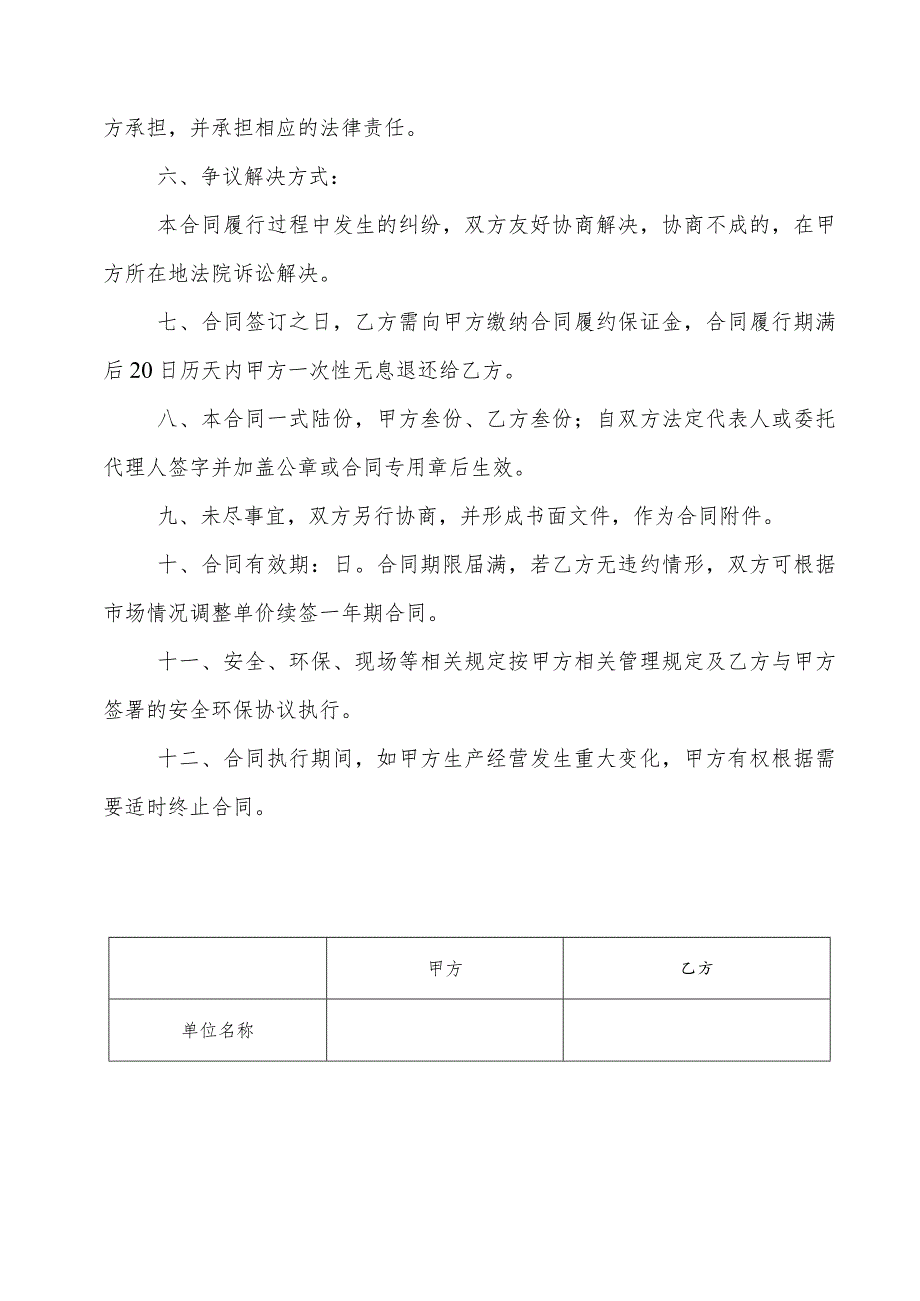 方承担，并承担相应的法律责任。
六、争议解决方式：
本合同履行过程中发生的纠纷，双方友好协商解决，协商不成的，在甲
方所在地法院诉讼解决。
七、合同签订之日，乙方需向甲方缴纳合同履约保证金，合同履行期满
后20日历天内甲方一次性无息退还给乙方。
八、本合同一式陆份，甲方叁份、乙方叁份；自双方法定代表人或委托
代理人签字并加盖公章或合同专用章后生效。
九、未尽事宜，双方另行协商，并形成书面文件，作为合同附件。
十、合同有效期：日。合同期限届满，若乙方无违约情形，双方可根据
市场情况调整单价续签一年期合同。
十一、安全、环保、现场等相关规定按甲方相关管理规定及乙方与甲方
签署的安全环保协议执行。
十二、合同执行期间，如甲方生产经营发生重大变化，甲方有权根据需
要适时终止合同。
甲方 乙方
单位名称